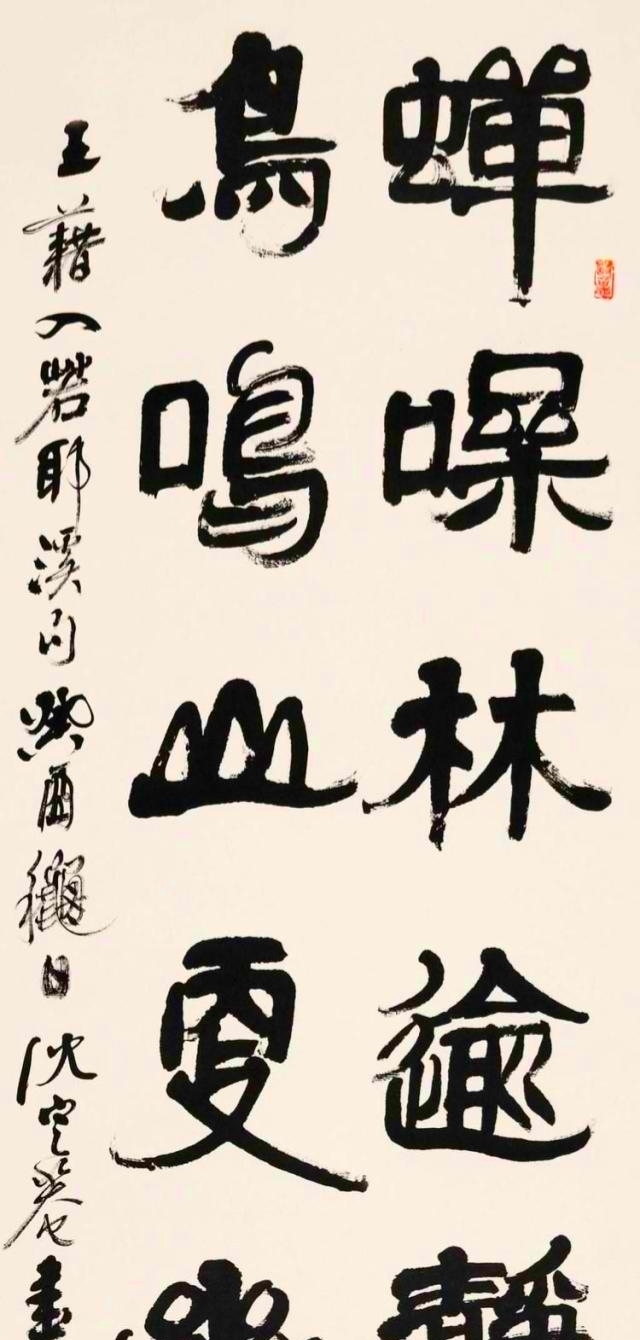 蟬噪林逾靜
鳥鳴山更幽
王藉入若耶溪句癸酉穐日沈定庵書